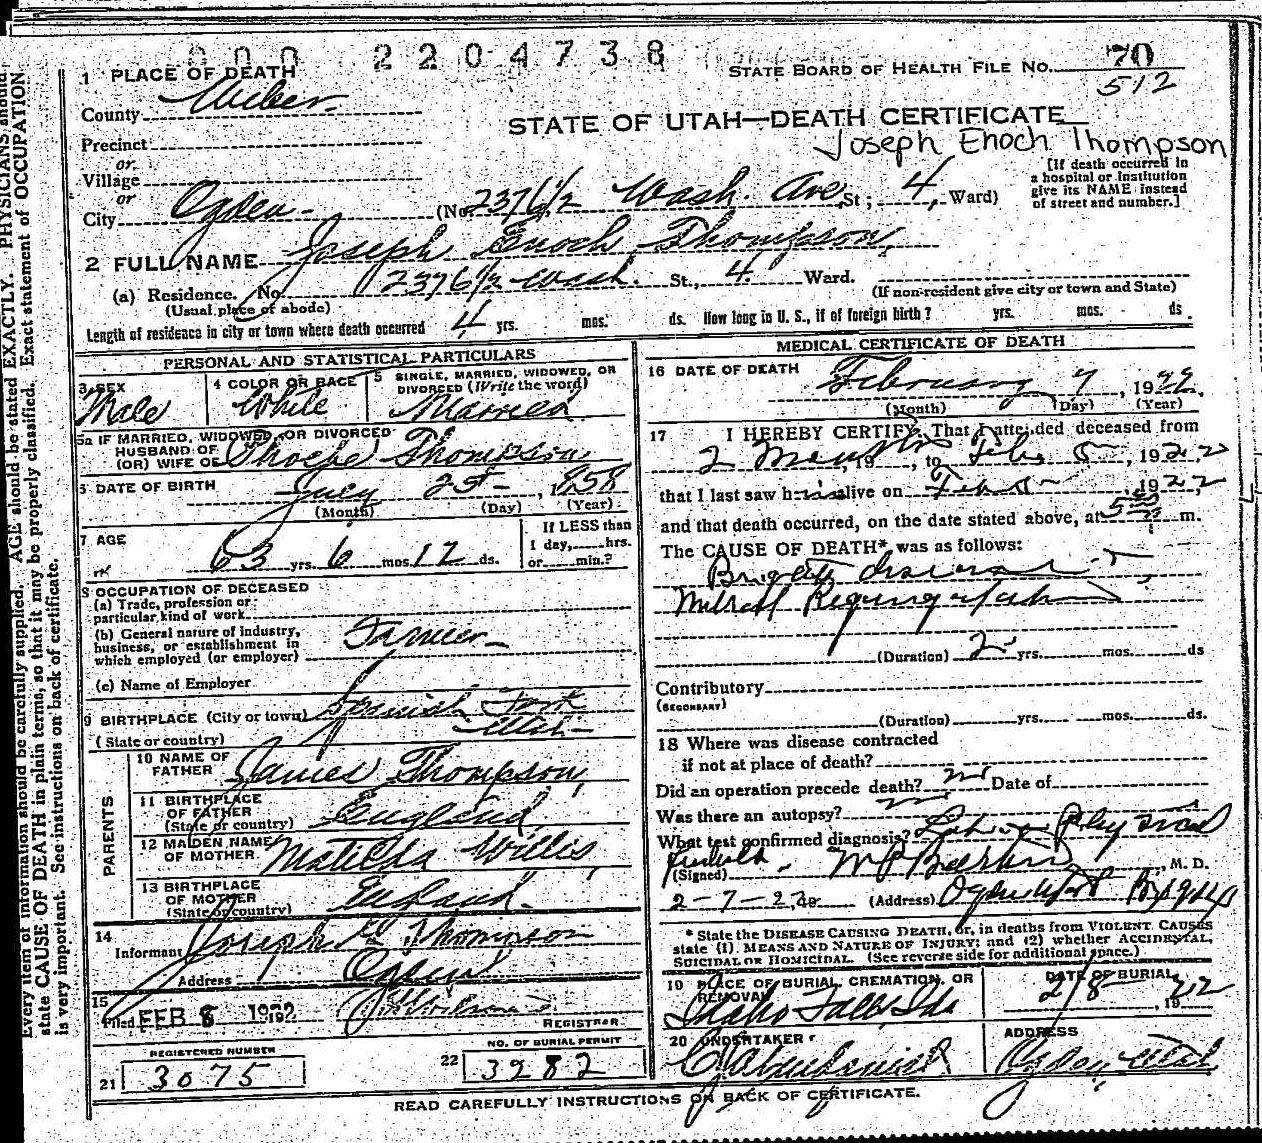 000 2204738
STATE BOARD OF HEALTH FILE NO. 70
512
1 PLACE OF DEATH
County Weber
STATE OF UTAH—DEATH CERTIFICATE
Joseph Enoch Thompson
Precinct
or
Village
or
City Ogden (No. 2376½ Wash. Ave St; 4 Ward)
[If death occurred in
a hospital or institution
give its NAME instead
of street and number.]
2 FULL NAME Joseph Enoch Thompson
(a) Residence. No. 2376½ Wash. St., 4 Ward.
(Usual place of abode) (If non-resident give city or town and State)
Length of residence in city or town where death occurred 4 yrs. mos. ds. How long in U. S., if of foreign birth? yrs. mos. ds.
PERSONAL AND STATISTICAL PARTICULARS
3 SEX
Male
4 COLOR OR RACE
White
5 SINGLE, MARRIED, WIDOWED, OR
DIVORCED (Write the word)
Married
5a IF MARRIED, WIDOWED, OR DIVORCED
HUSBAND OF
(OR) WIFE OF Phoebe Thompson
6 DATE OF BIRTH July 25 1858
(Month) (Day) (Year)
7 AGE
63 yrs. 6 mos. 12 ds.
If LESS than
1 day, hrs.
or min.?
8 OCCUPATION OF DECEASED
(a) Trade, profession or
particular kind of work
(b) General nature of industry,
business, or establishment in
which employed (or employer)
Farmer
(c) Name of Employer
9 BIRTHPLACE (City or town) Spanish Fork
(State or country) Utah
PARENTS
10 NAME OF
FATHER James Thompson
11 BIRTHPLACE
OF FATHER
(State or country) England
12 MAIDEN NAME
OF MOTHER Matilda Willis
13 BIRTHPLACE
OF MOTHER
(State or country) England
14
Informant Joseph G Thompson
Address Ogden
15
Filed FEB 8 1922
REGISTRAR
REGISTERED NUMBER
21 3075
NO. OF BURIAL PERMIT
22 3282
MEDICAL CERTIFICATE OF DEATH
16 DATE OF DEATH February 7, 1922
(Month) (Day) (Year)
17 I HEREBY CERTIFY, That I attended deceased from
2 Months, 19 , to Feb 5, 1922
that I last saw him alive on Feb 5 1922
and that death occurred, on the date stated above, at 5 m.
The CAUSE OF DEATH* was as follows:
Brights disease
Mitral Regurgitation
(Duration) 2 yrs. mos. ds
Contributory
(SECONDARY)
(Duration) yrs. mos. ds.
18 Where was disease contracted
if not at place of death?
Did an operation precede death? no Date of
Was there an autopsy? no
What test confirmed diagnosis? Physical
(Signed) M. D.
2-7-22, 19 (Address) Ogden Utah
* State the DISEASE CAUSING DEATH, or, in deaths from VIOLENT CAUSES
state (1) MEANS AND NATURE OF INJURY; and (2) whether ACCIDENTAL,
SUICIDAL OR HOMICIDAL. (See reverse side for additional space.)
19 PLACE OF BURIAL, CREMATION, OR
REMOVAL
Idaho Falls, Ida
DATE OF BURIAL
2/8 1922
20 UNDERTAKER
ADDRESS
Ogden Utah
READ CAREFULLY INSTRUCTIONS ON BACK OF CERTIFICATE.
Every item of information should be carefully supplied. AGE should be stated EXACTLY. PHYSICIANS should
state CAUSE OF DEATH in plain terms, so that it may be properly classified. Exact statement of OCCUPATION
is very important. See instructions on back of certificate.